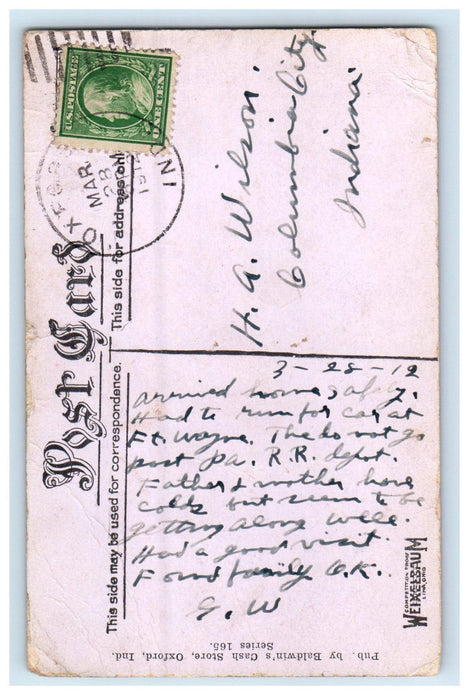 U.S. POSTAGE
ONE CENT
OXFORD
MAR
28
1912
IND
Post Card
This side for address only
This side may be used for correspondence.
H. A. Wilson.
Columbia City,
Indiana.
3-28-12
arrived home safely.
Had to run for car at
Ft. Wayne. The do not go
past Pa. R.R. depot.
Father & mother have
colds but seem to be
getting along well.
Had a good visit.
Found family O.K.
G. W
COMPETITION PROOF
WEIXELBAUM
LIMA, OHIO
Pub. by Baldwin's Cash Store, Oxford, Ind.
Series 165.